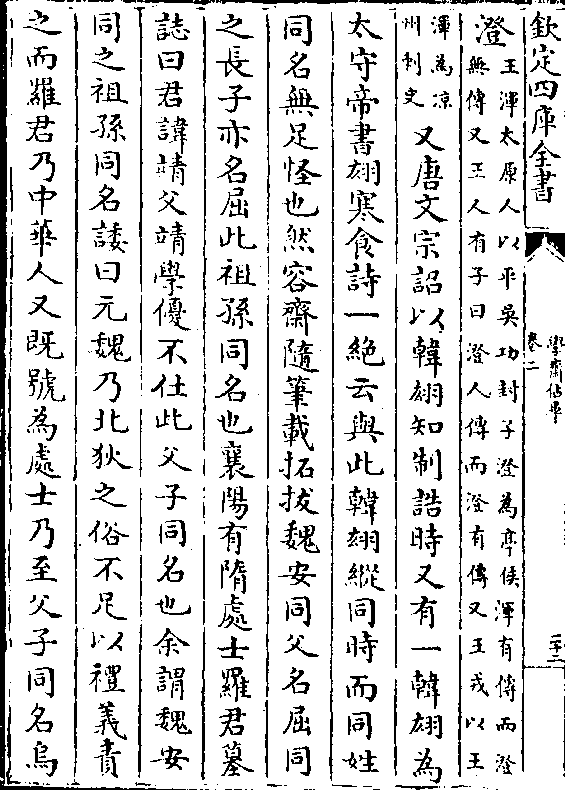 欽定四庫全書
學齋佔畢
卷二
二十二
澄王渾太原人以平吳功封子澄為亭侯渾有傳而澄
無傳又王人有子曰澄人傳而澄有傳又王戎以王
渾為凉
州刺史又唐文宗詔以韓翃知制誥時又有一韓翃為
太守帝書翃寒食詩一絶云與此韓翃縱同時而同姓
同名無足怪也然容齋隨筆載拓拔魏安同父名屈同
之長子亦名屈此祖孫同名也襄陽有隋處士羅君墓
誌曰君諱靖父靖學優不仕此父子同名也余謂魏安
同之祖孫同名諉曰元魏乃北狄之俗不足以禮義責
之而羅君乃中華人又既號為處士乃至父子同名烏